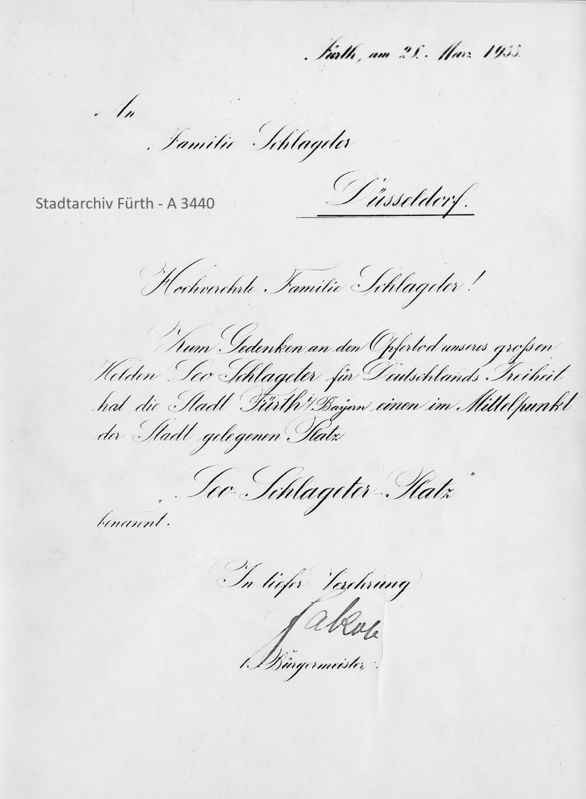 Fürth, am 28. März 1933.
An
Familie Schlageter
Düsseldorf.
Stadtarchiv Fürth - A 3440
Hochverehrte Familie Schlageter!
Zum Gedenken an den Opfertod unseres großen
Helden Leo Schlageter für Deutschlands Freiheit
hat die Stadt Fürth i/Bayern einen im Mittelpunkt
der Stadt gelegenen Platz
"Leo-Schlageter-Platz"
benannt.
In tiefer Verehrung
Jakob
1. Bürgermeister.